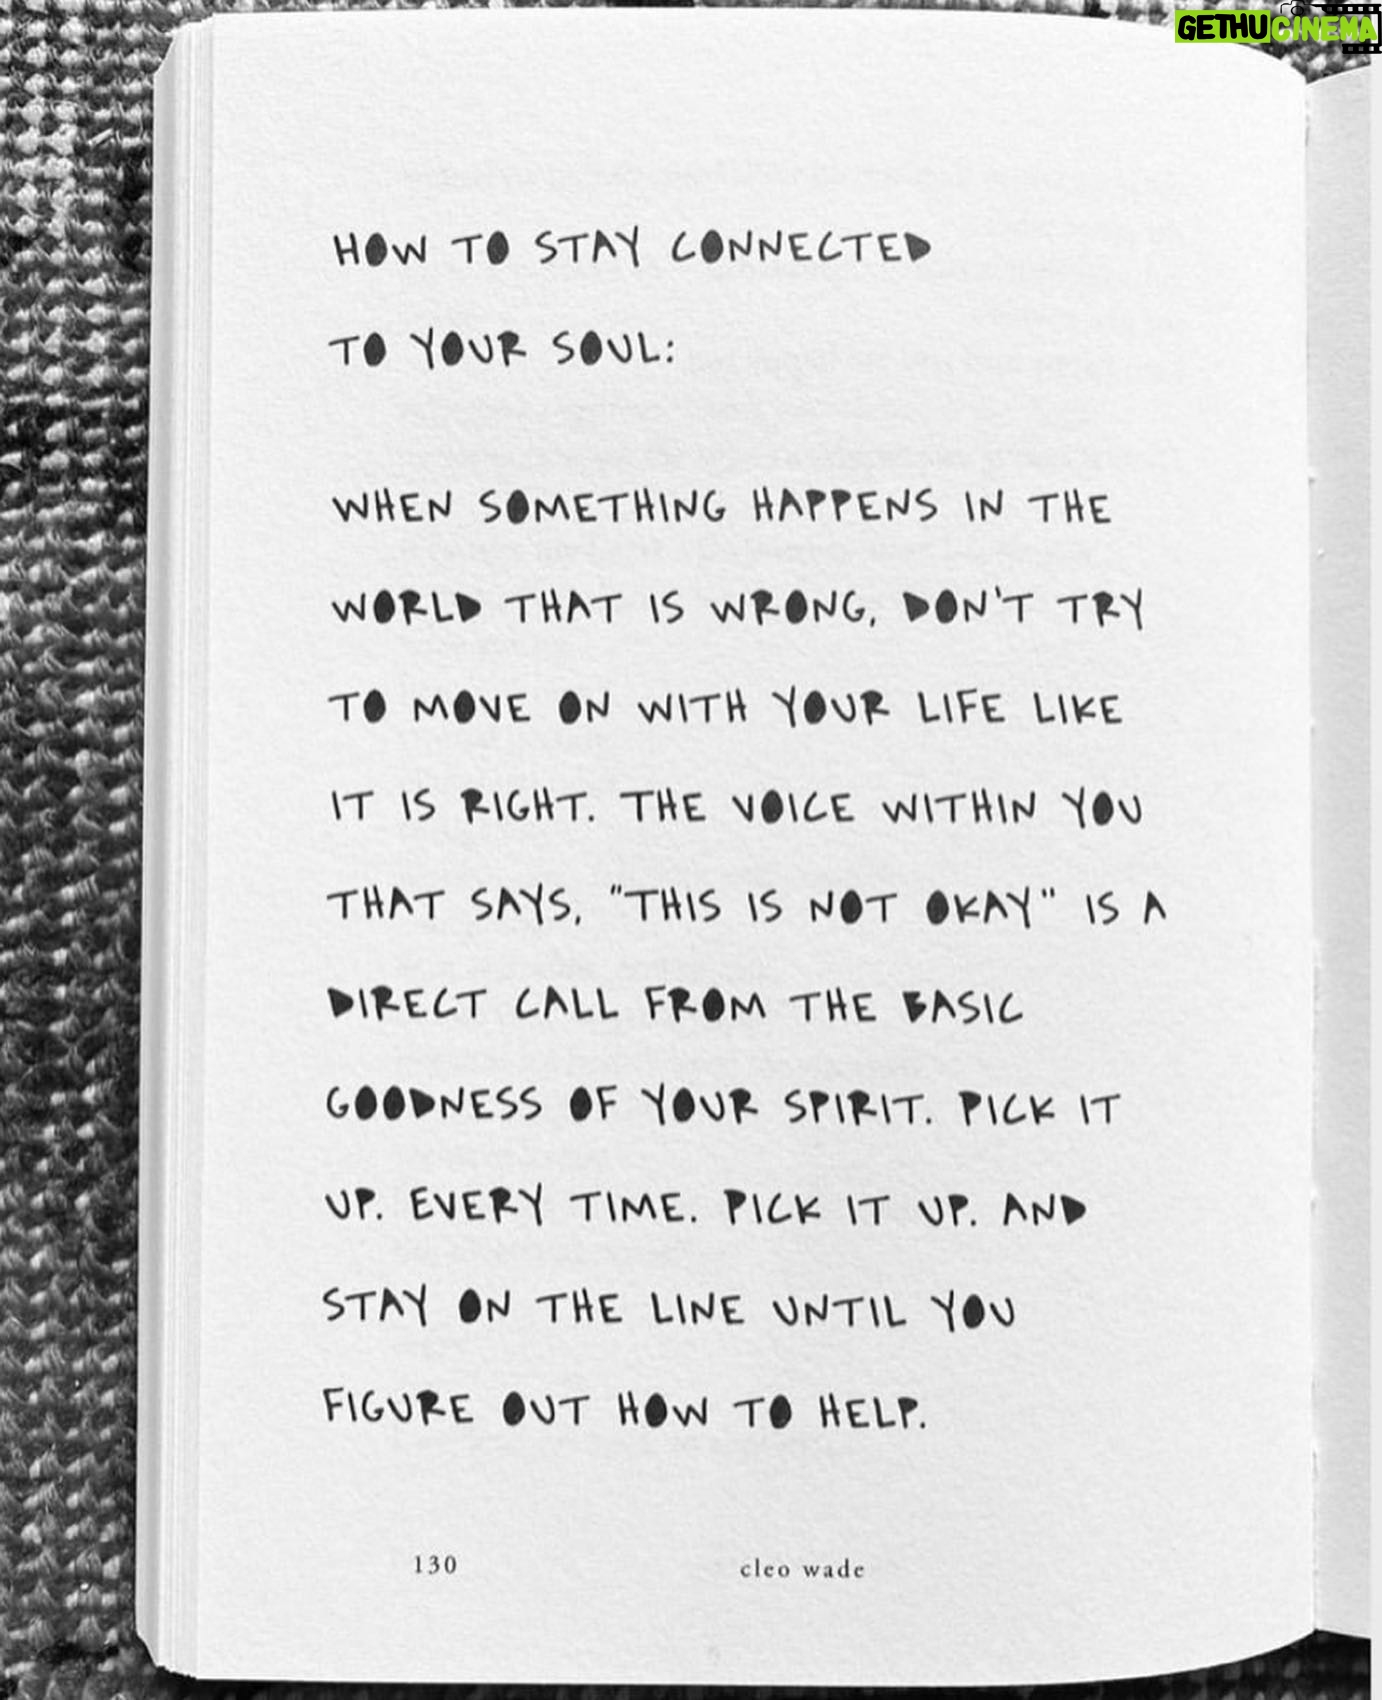 GETHUCINEMA
HOW TO STAY CONNECTED
TO YOUR SOUL:
WHEN SOMETHING HAPPENS IN THE
WORLD THAT IS WRONG, DON'T TRY
TO MOVE ON WITH YOUR LIFE LIKE
IT IS RIGHT. THE VOICE WITHIN YOU
THAT SAYS, "THIS IS NOT OKAY" IS A
DIRECT CALL FROM THE BASIC
GOODNESS OF YOUR SPIRIT. PICK IT
UP. EVERY TIME. PICK IT UP. AND
STAY ON THE LINE UNTIL YOU
FIGURE OUT HOW TO HELP.
130 cleo wade